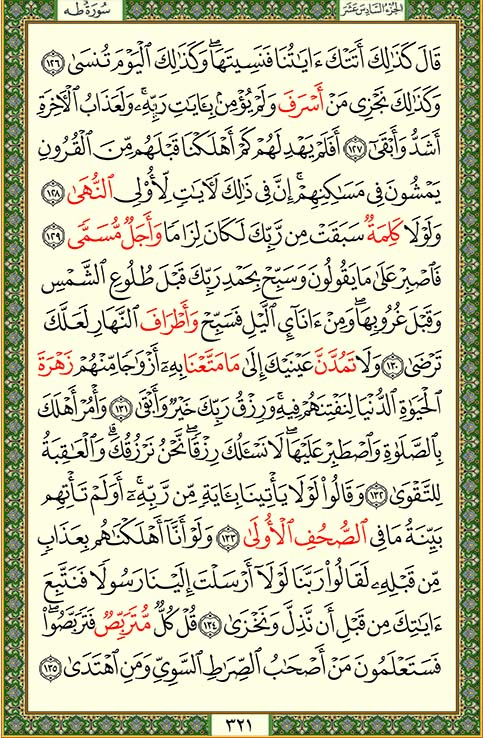 الجزء السادس عشر
سورة طه
قَالَ كَذَٰلِكَ أَتَتْكَ ءَايَٰتُنَا فَنَسِيتَهَا ۖ وَكَذَٰلِكَ ٱلْيَوْمَ تُنسَىٰ ١٢٦
وَكَذَٰلِكَ نَجْزِى مَنْ أَسْرَفَ وَلَمْ يُؤْمِنۢ بِـَٔايَٰتِ رَبِّهِۦ ۚ وَلَعَذَابُ ٱلْـَٔاخِرَةِ
أَشَدُّ وَأَبْقَىٰٓ ١٢٧ أَفَلَمْ يَهْدِ لَهُمْ كَمْ أَهْلَكْنَا قَبْلَهُم مِّنَ ٱلْقُرُونِ
يَمْشُونَ فِى مَسَٰكِنِهِمْ ۗ إِنَّ فِى ذَٰلِكَ لَـَٔايَٰتٍ لِّأُو۟لِى ٱلنُّهَىٰ ١٢٨
وَلَوْلَا كَلِمَةٌ سَبَقَتْ مِن رَّبِّكَ لَكَانَ لِزَامًا وَأَجَلٌ مُّسَمًّى ١٢٩
فَٱصْبِرْ عَلَىٰ مَا يَقُولُونَ وَسَبِّحْ بِحَمْدِ رَبِّكَ قَبْلَ طُلُوعِ ٱلشَّمْسِ
وَقَبْلَ غُرُوبِهَا ۖ وَمِنْ ءَانَآئِ ٱلَّيْلِ فَسَبِّحْ وَأَطْرَافَ ٱلنَّهَارِ لَعَلَّكَ
تَرْضَىٰ ١٣٠ وَلَا تَمُدَّنَّ عَيْنَيْكَ إِلَىٰ مَا مَتَّعْنَا بِهِۦٓ أَزْوَٰجًا مِّنْهُمْ زَهْرَةَ
ٱلْحَيَوٰةِ ٱلدُّنْيَا لِنَفْتِنَهُمْ فِيهِ ۚ وَرِزْقُ رَبِّكَ خَيْرٌ وَأَبْقَىٰ ١٣١ وَأْمُرْ أَهْلَكَ
بِٱلصَّلَوٰةِ وَٱصْطَبِرْ عَلَيْهَا ۖ لَا نَسْـَٔلُكَ رِزْقًا ۖ نَّحْنُ نَرْزُقُكَ ۗ وَٱلْعَٰقِبَةُ
لِلتَّقْوَىٰ ١٣٢ وَقَالُوا۟ لَوْلَا يَأْتِينَا بِـَٔايَةٍ مِّن رَّبِّهِۦٓ ۚ أَوَلَمْ تَأْتِهِم
بَيِّنَةُ مَا فِى ٱلصُّحُفِ ٱلْأُولَىٰ ١٣٣ وَلَوْ أَنَّآ أَهْلَكْنَٰهُم بِعَذَابٍ
مِّن قَبْلِهِۦ لَقَالُوا۟ رَبَّنَا لَوْلَآ أَرْسَلْتَ إِلَيْنَا رَسُولًا فَنَتَّبِعَ
ءَايَٰتِكَ مِن قَبْلِ أَن نَّذِلَّ وَنَخْزَىٰ ١٣٤ قُلْ كُلٌّ مُّتَرَبِّصٌ فَتَرَبَّصُوا۟ ۖ
فَسَتَعْلَمُونَ مَنْ أَصْحَٰبُ ٱلصِّرَٰطِ ٱلسَّوِىِّ وَمَنِ ٱهْتَدَىٰ ١٣٥
٣٢١